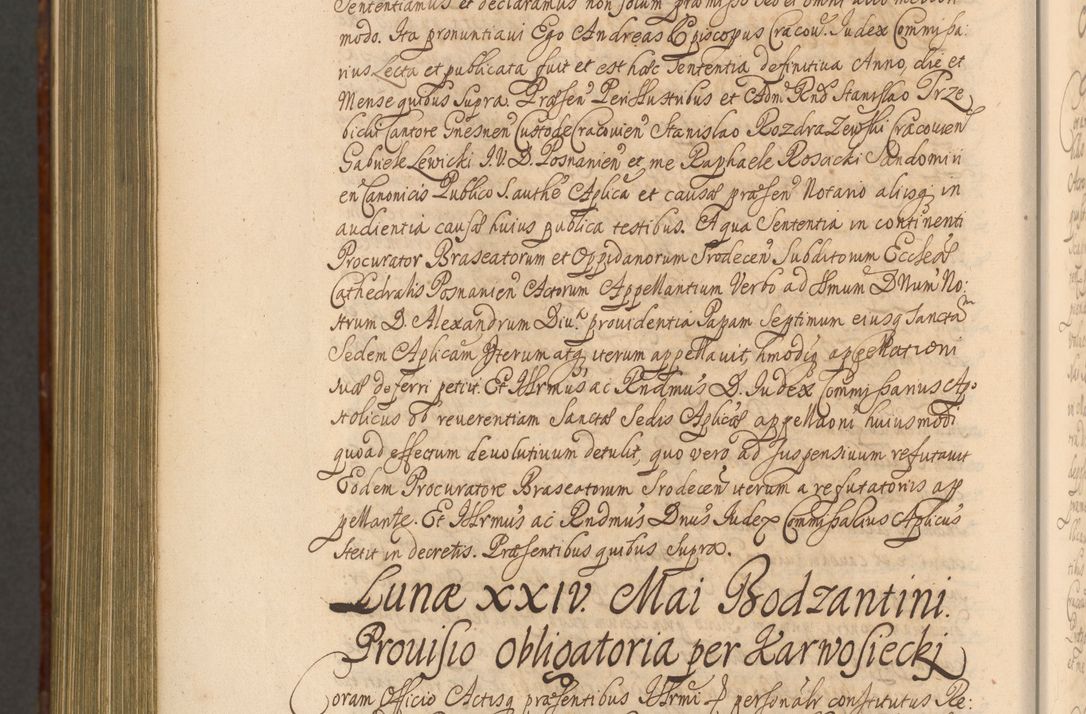 Sententiamus et declaramus non solum præmisso sed et omni alio meliori
modo. Ita pronuntiavi Ego Andreas Episcopus Cracov. Iudex Commissa:
rius Lecta et publicata fuit et est hæc Sententia definitiva Anno, die et
Mense quibus supra. Præsen Perillustribus et Adm Rnd Stanislao Prze
bicki Cantore Gnesnen Custode Cracovien Stanislao Rozdrazewski Cracovien
Gabriele Lewicki I.V.D. Posnanien et me Raphaele Rosacki Sandomiri
en Canonicis Publico S. authe Aplica et causæ præsen Notario aliisq; in
audientia causæ huius publica testibus. A qua Sententia in continenti
Procurator Braseatorum et Oppidanorum Srodecen Subditorum Ecclæ
Cathedralis Posnanien Actorum Appellantium Verbo ad Smum D Num No:
strum D. Alexandrum Div.a providentia Papam Septimum eiusq Sanctam
Sedem Aplicam Iterum atq iterum appellavit, hmodiq appellationi
suæ deferri petiit. Et Illrmus ac Rndmus D. Iudex Commissarius Apo
stolicus ob reverentiam Sanctæ Sedis Aplicæ appellaoni huiusmodi
quoad effectum devolutivum detulit, quo vero ad suspensivum refutavit
Eodem Procuratore Braseatorum Srodecen iterum a refutatoriis ap
pellante. Et Illrmus ac Rndmus Dnus Iudex Commissarius Aplicus
stetit in decretis. Præsentibus quibus supra.
Lunæ XXIV. Mai Bodzantini.
Provisio obligatoria per Karwosiecki
Coram Officio Actisq præsentibus Illrmi personalr constitutus Re: